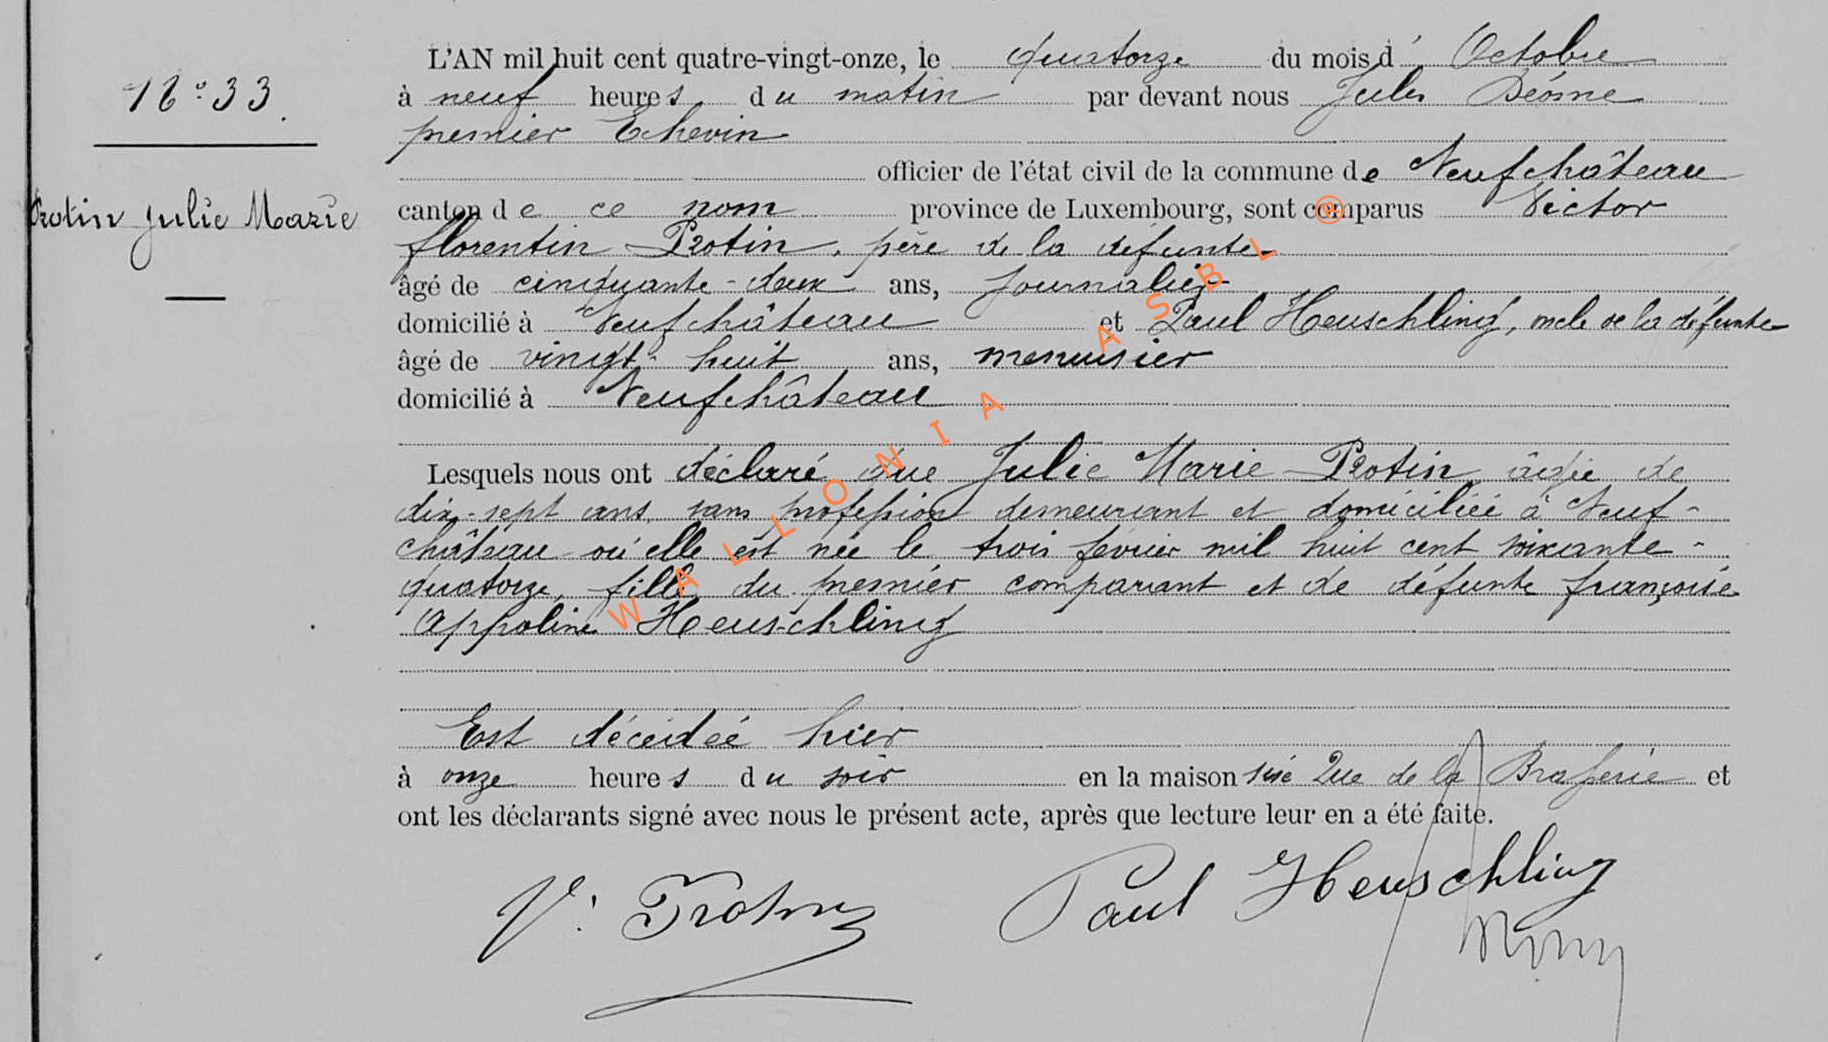 L'AN mil huit cent quatre-vingt-onze, le quatorze du mois d' Octobre
N° 33.
à neuf heures du matin par devant nous Jules
premier Echevin
officier de l'état civil de la commune de Neufchâteau
Protin Julie Marie
canton de ce nom province de Luxembourg, sont comparus Victor
florentin Protin, père de la défunte
âgé de cinquante-deux ans, Journalier
domicilié à Neufchâteau et Paul Heuschling, oncle de la défunte
âgé de vingt-huit ans, menuisier
domicilié à Neufchâteau
Lesquels nous ont déclaré que Julie Marie Protin, âgée de
dix-sept ans, sans profession demeurant et domiciliée à Neuf-
château où elle est née le trois février mil huit cent soixante-
quatorze, fille du premier comparant et de défunte françoise
Appoline Heuschling
Est décédée hier
à onze heures du soir en la maison sise Rue de la Brasserie et
ont les déclarants signé avec nous le présent acte, après que lecture leur en a été faite.
V. Protin Paul Heuschling
WALLONIA ASBL ®